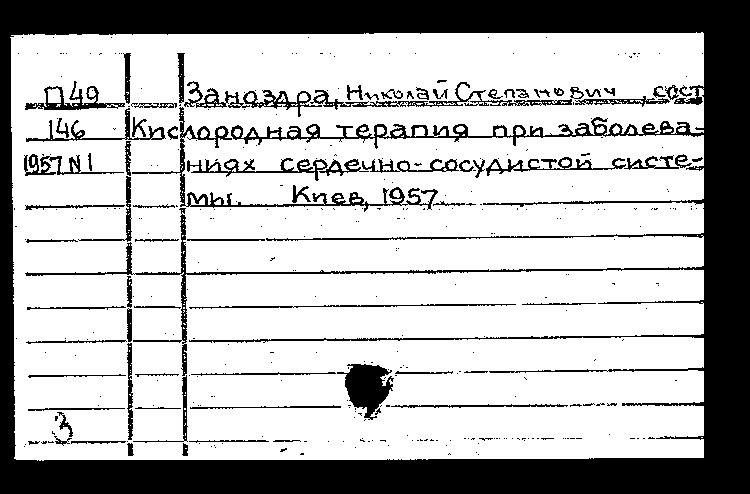 П49 Заноздра, Николай Степанович, сост
146 Кислородная терапия при заболева-
1957 N1 ниях сердечно-сосудистой систе-
мы. Киев, 1957.
3